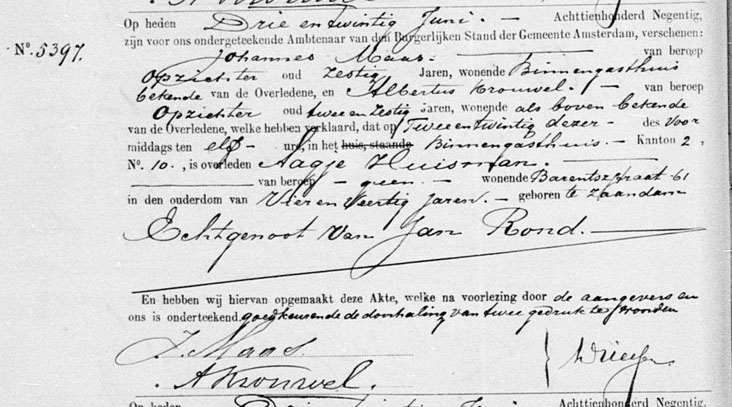 Op heden Drie en twintig Juni. — Achttienhonderd Negentig,
Nº. 5397.
zijn voor ons ondergeteekende Ambtenaar van den Burgerlijken Stand der Gemeente Amsterdam, verschenen:
Johannes Maas. van beroep
Opzichter oud Zestig Jaren, wonende Binnengasthuis
bekende van de Overledene, en Albertus Krouwel. — van beroep
Opzichter oud twee en Zestig Jaren, wonende als boven bekende
van de Overledene, welke hebben verklaard, dat op Twee en twintig dezer — des Voor
middags ten elf — ure, in het huis, staande Binnengasthuis. — Kanton 2,
Nº. 10., is overleden Aagje Huisman.
van beroep — geen. — wonende Barentszstraat 61
in den ouderdom van Vier en Veertig jaren. — geboren te Zaandam
Echtgenoot van Jan Rond. —
En hebben wij hiervan opgemaakt deze Akte, welke na voorlezing door de aangevers en
ons is onderteekend. goedkeurende de doorhaling van twee gedrukte woorden
J. Maas
A Krouwel.
Op heden Drie en twintig Juni Achttienhonderd Negentig,